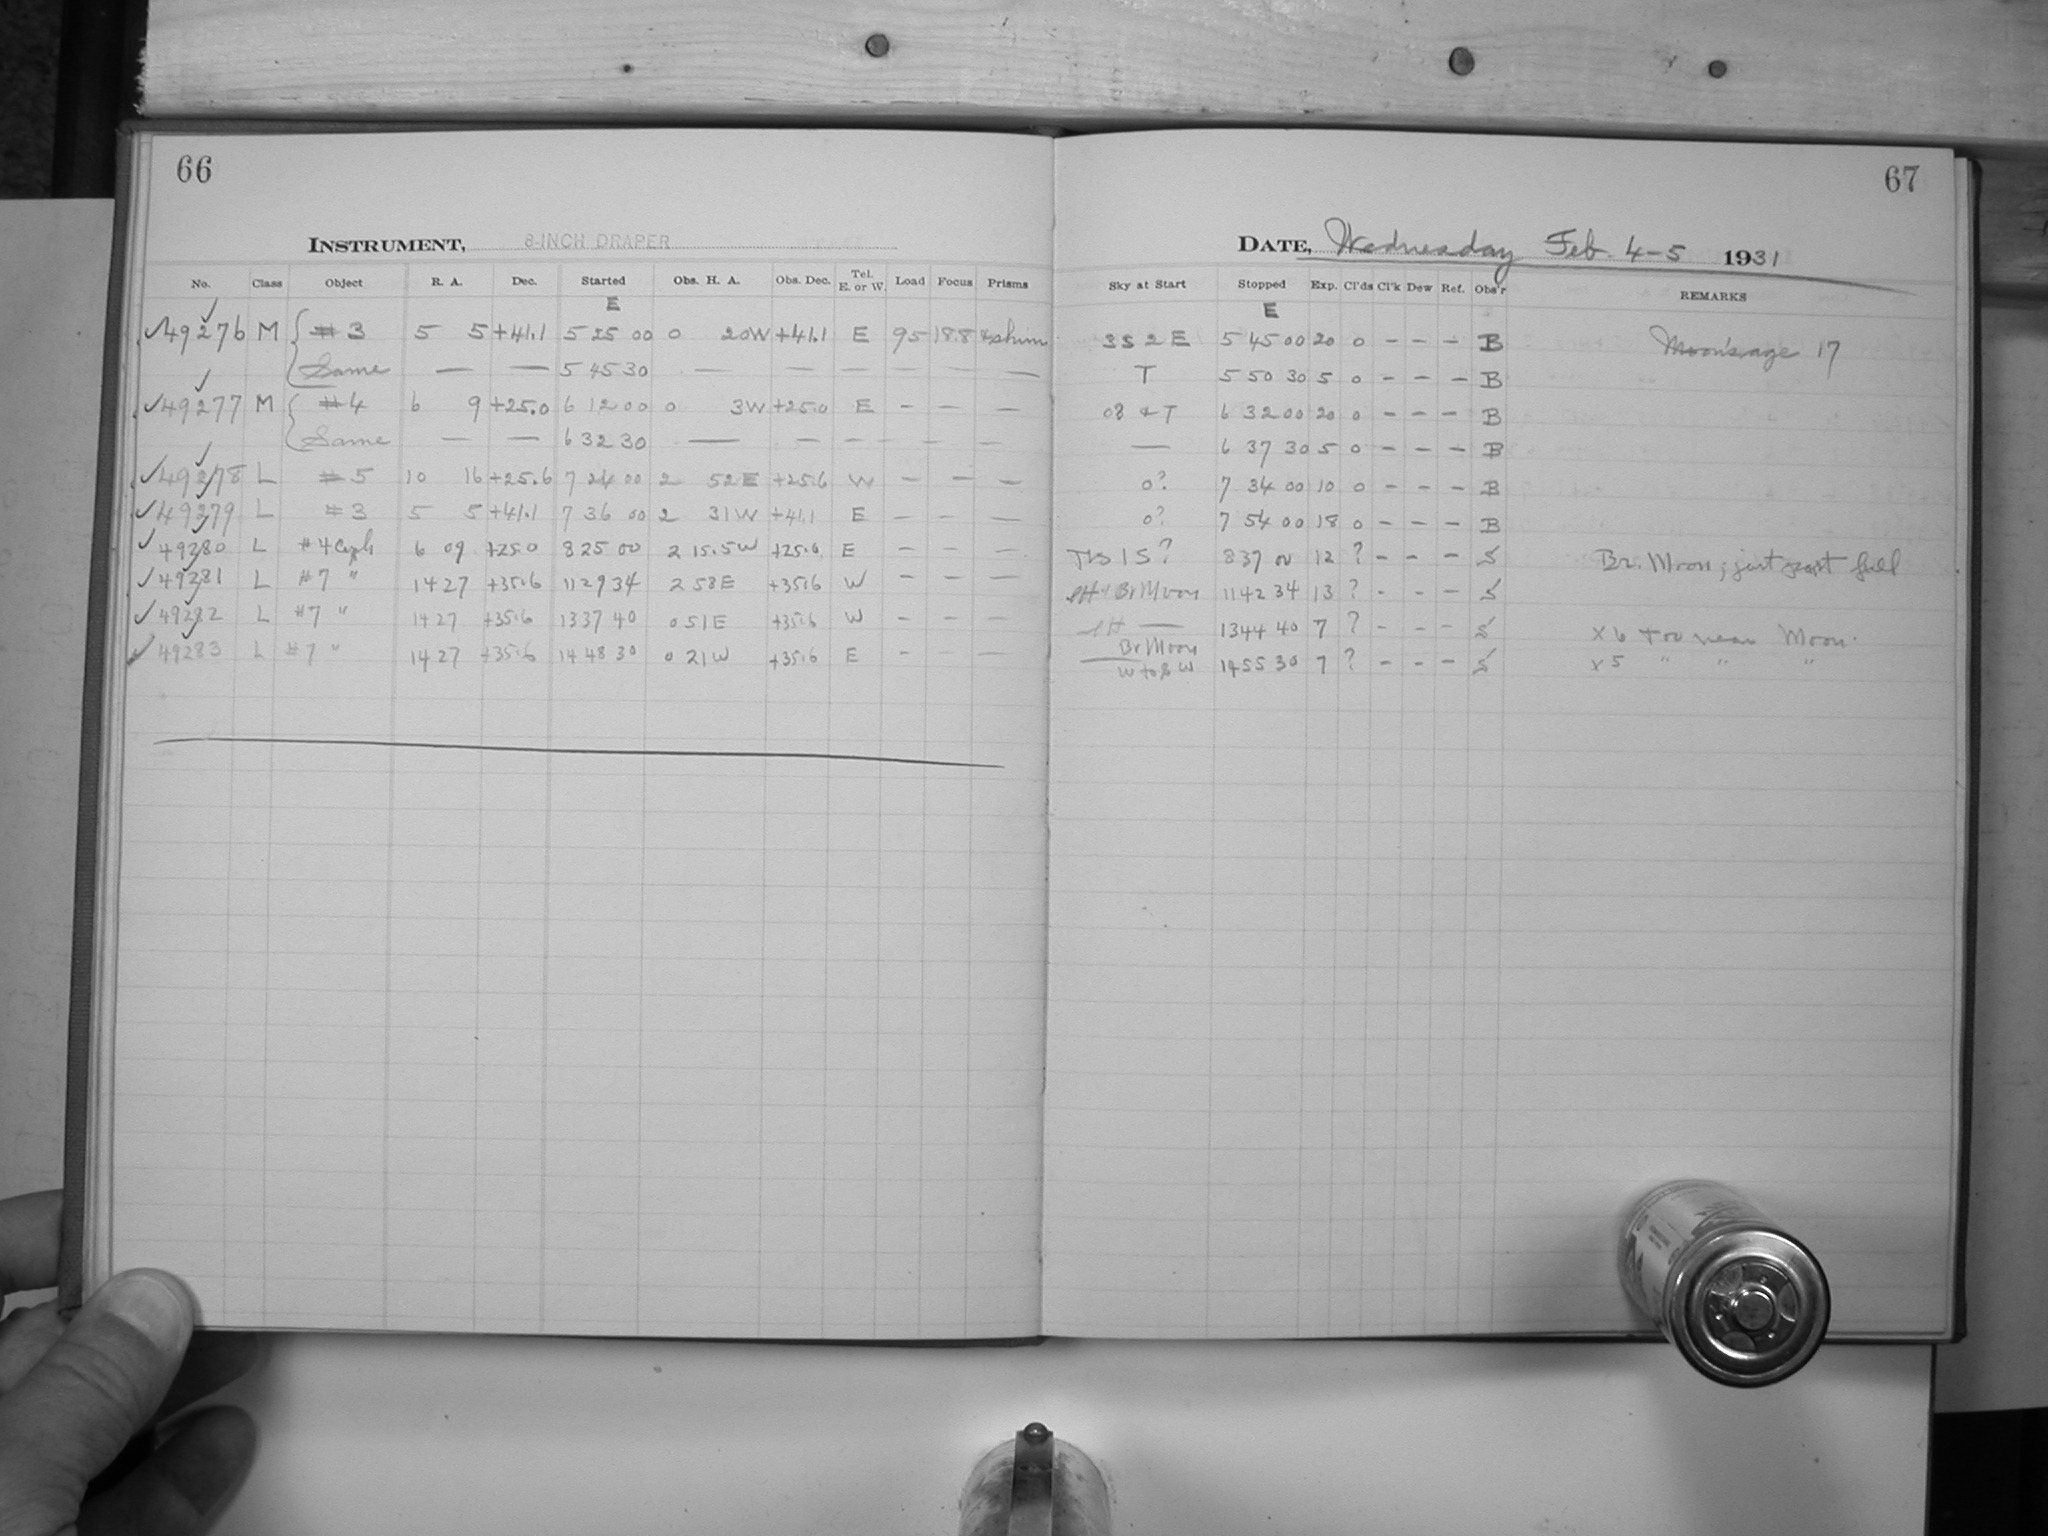 66
INSTRUMENT, 8-INCH DRAPER
No. Class Object R. A. Dec. Started Obs. H. A. Obs. Dec. Tel. E. or W. Load Focus Prisms
E
49276 M #3 5 5 +41.1 5 25 00 0 20W +41.1 E 95 188
Same — — 5 45 30 — — — — — —
49277 M #4 6 9 +25.0 6 12 00 0 3W +25.0 E — — —
Same — — 6 32 30 — — — — — —
49278 L #5 10 16 +25.6 7 24 00 2 52E +25.6 W — — —
49279 L #3 5 5 +41.1 7 36 00 2 31W +41.1 E — — —
49280 L #4 Ceph 6 09 +25.0 8 25 00 2 15.5W +25.0 E — — —
49281 L #7 " 14 27 +35.6 11 29 34 2 58E +35.6 W — — —
49282 L #7 " 14 27 +35.6 13 37 40 0 51E +35.6 W — — —
49283 L #7 " 14 27 +35.6 14 48 30 0 21W +35.6 E — — —
67
DATE, Wednesday Feb. 4-5 1931
Sky at Start Stopped Exp. Cl'ds Cl'k Dew Ref. Obs'r REMARKS
E
3S 2E 5 45 00 20 0 - - - B Moon's age 17
T 5 50 30 5 0 - - - B
& T 6 32 00 20 0 - - - B
— 6 37 30 5 0 - - - B
0? 7 34 00 10 0 - - - B
0? 7 54 00 18 0 - - - B
1S? 8 37 00 12 ? - - - S Br. Moon; just past full
Br Moon 11 42 34 13 ? - - - S
— 13 44 40 7 ? - - - S x6 too near Moon.
Br Moon
W to SW 14 55 30 7 ? - - - S x5 " " "